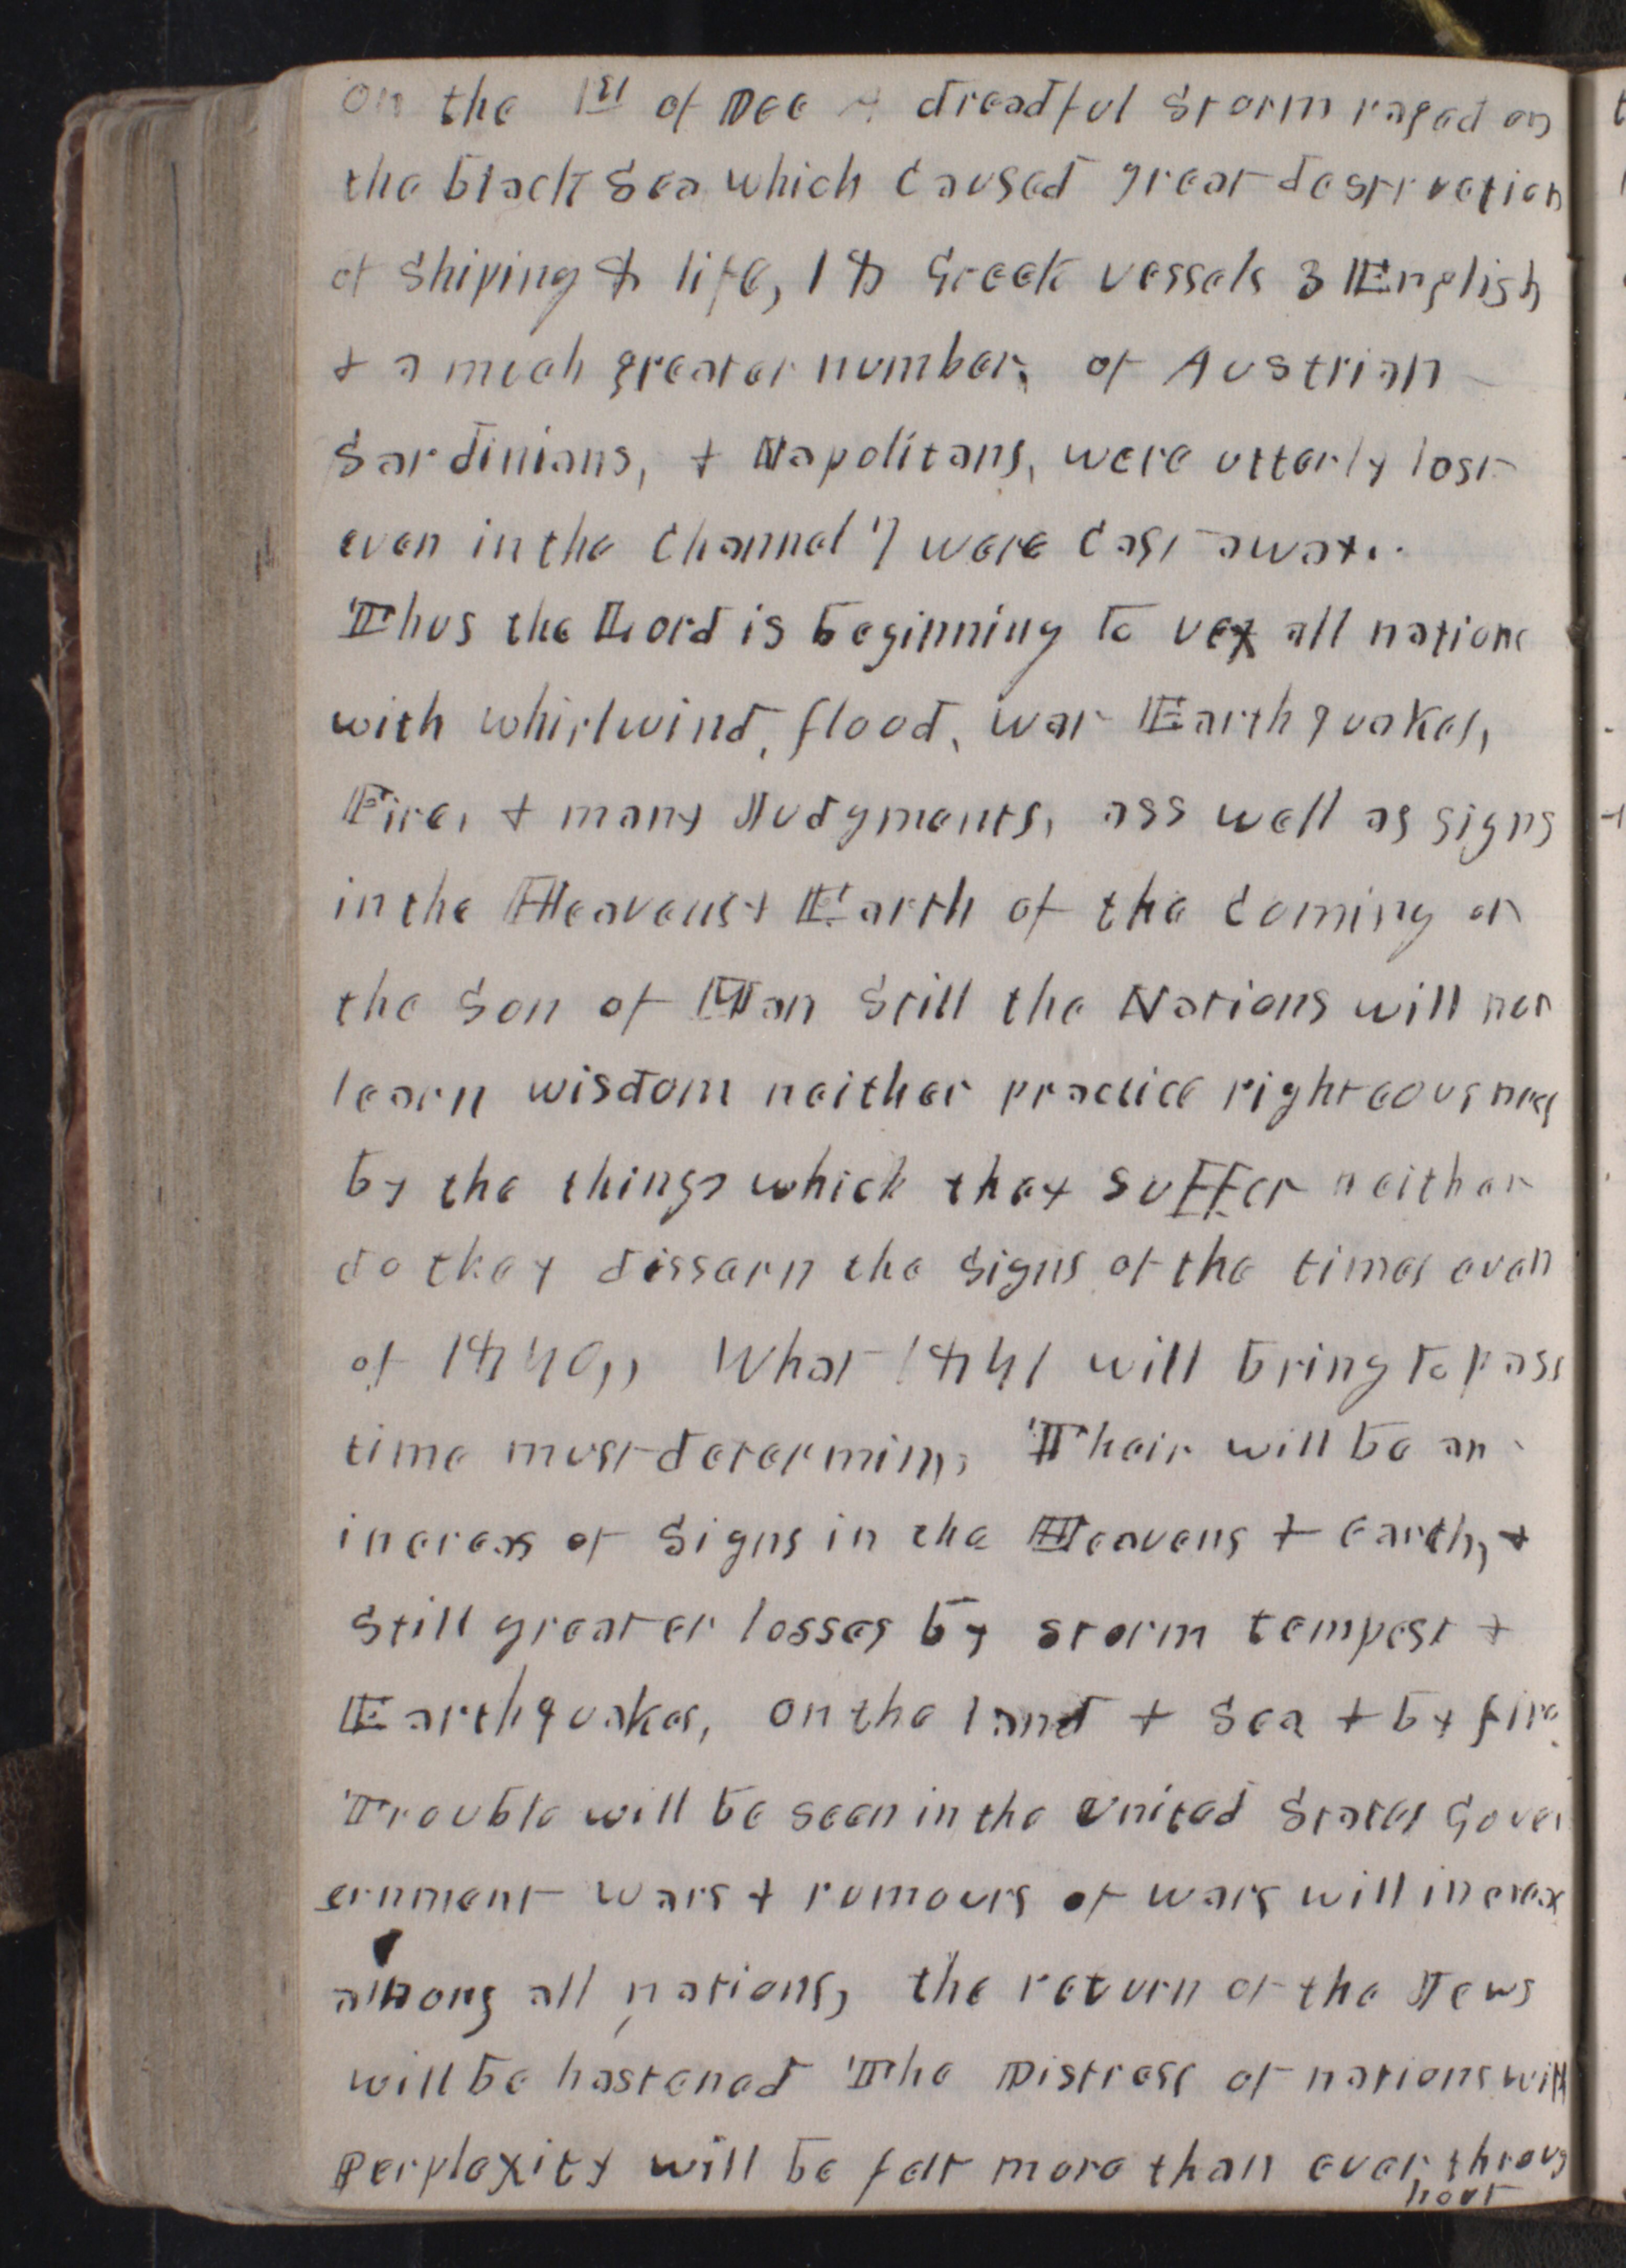 On the 1st of Dec A dreadful Storm raged on
the black Sea which Caused great destruction
of Shiping & life, 18 Greek vessels 3 English
& a much greater number, of Austrian
Sardinians, & Napolitans, were utterly lost
even in the Channel 7 were Cast away..
Thus the Lord is beginning to vex all nations
with whirlwind, flood, war Earthquakes,
Fire, & many Judgments, ass well as signs
in the Heavens & Earth of the Coming of
the Son of Man Still the Nations will not
learn wisdom neither practice righteousness
by the things which they suffer neither
do they dissern the Signs of the times even
of 1840,, What 1841 will bring to pass
time must determin, Their will be an
increas of Signs in the Heavens & earth, &
Still greater losses by storm tempest &
Earthquakes, on the land & Sea & by fire.
Trouble will be seen in the United States Gover
ernment wars & rumours of wars will increas
among all nations, the return of the Jews
will be hastened The Distress of nations with
Perplexity will be felt more than ever, throug
hout